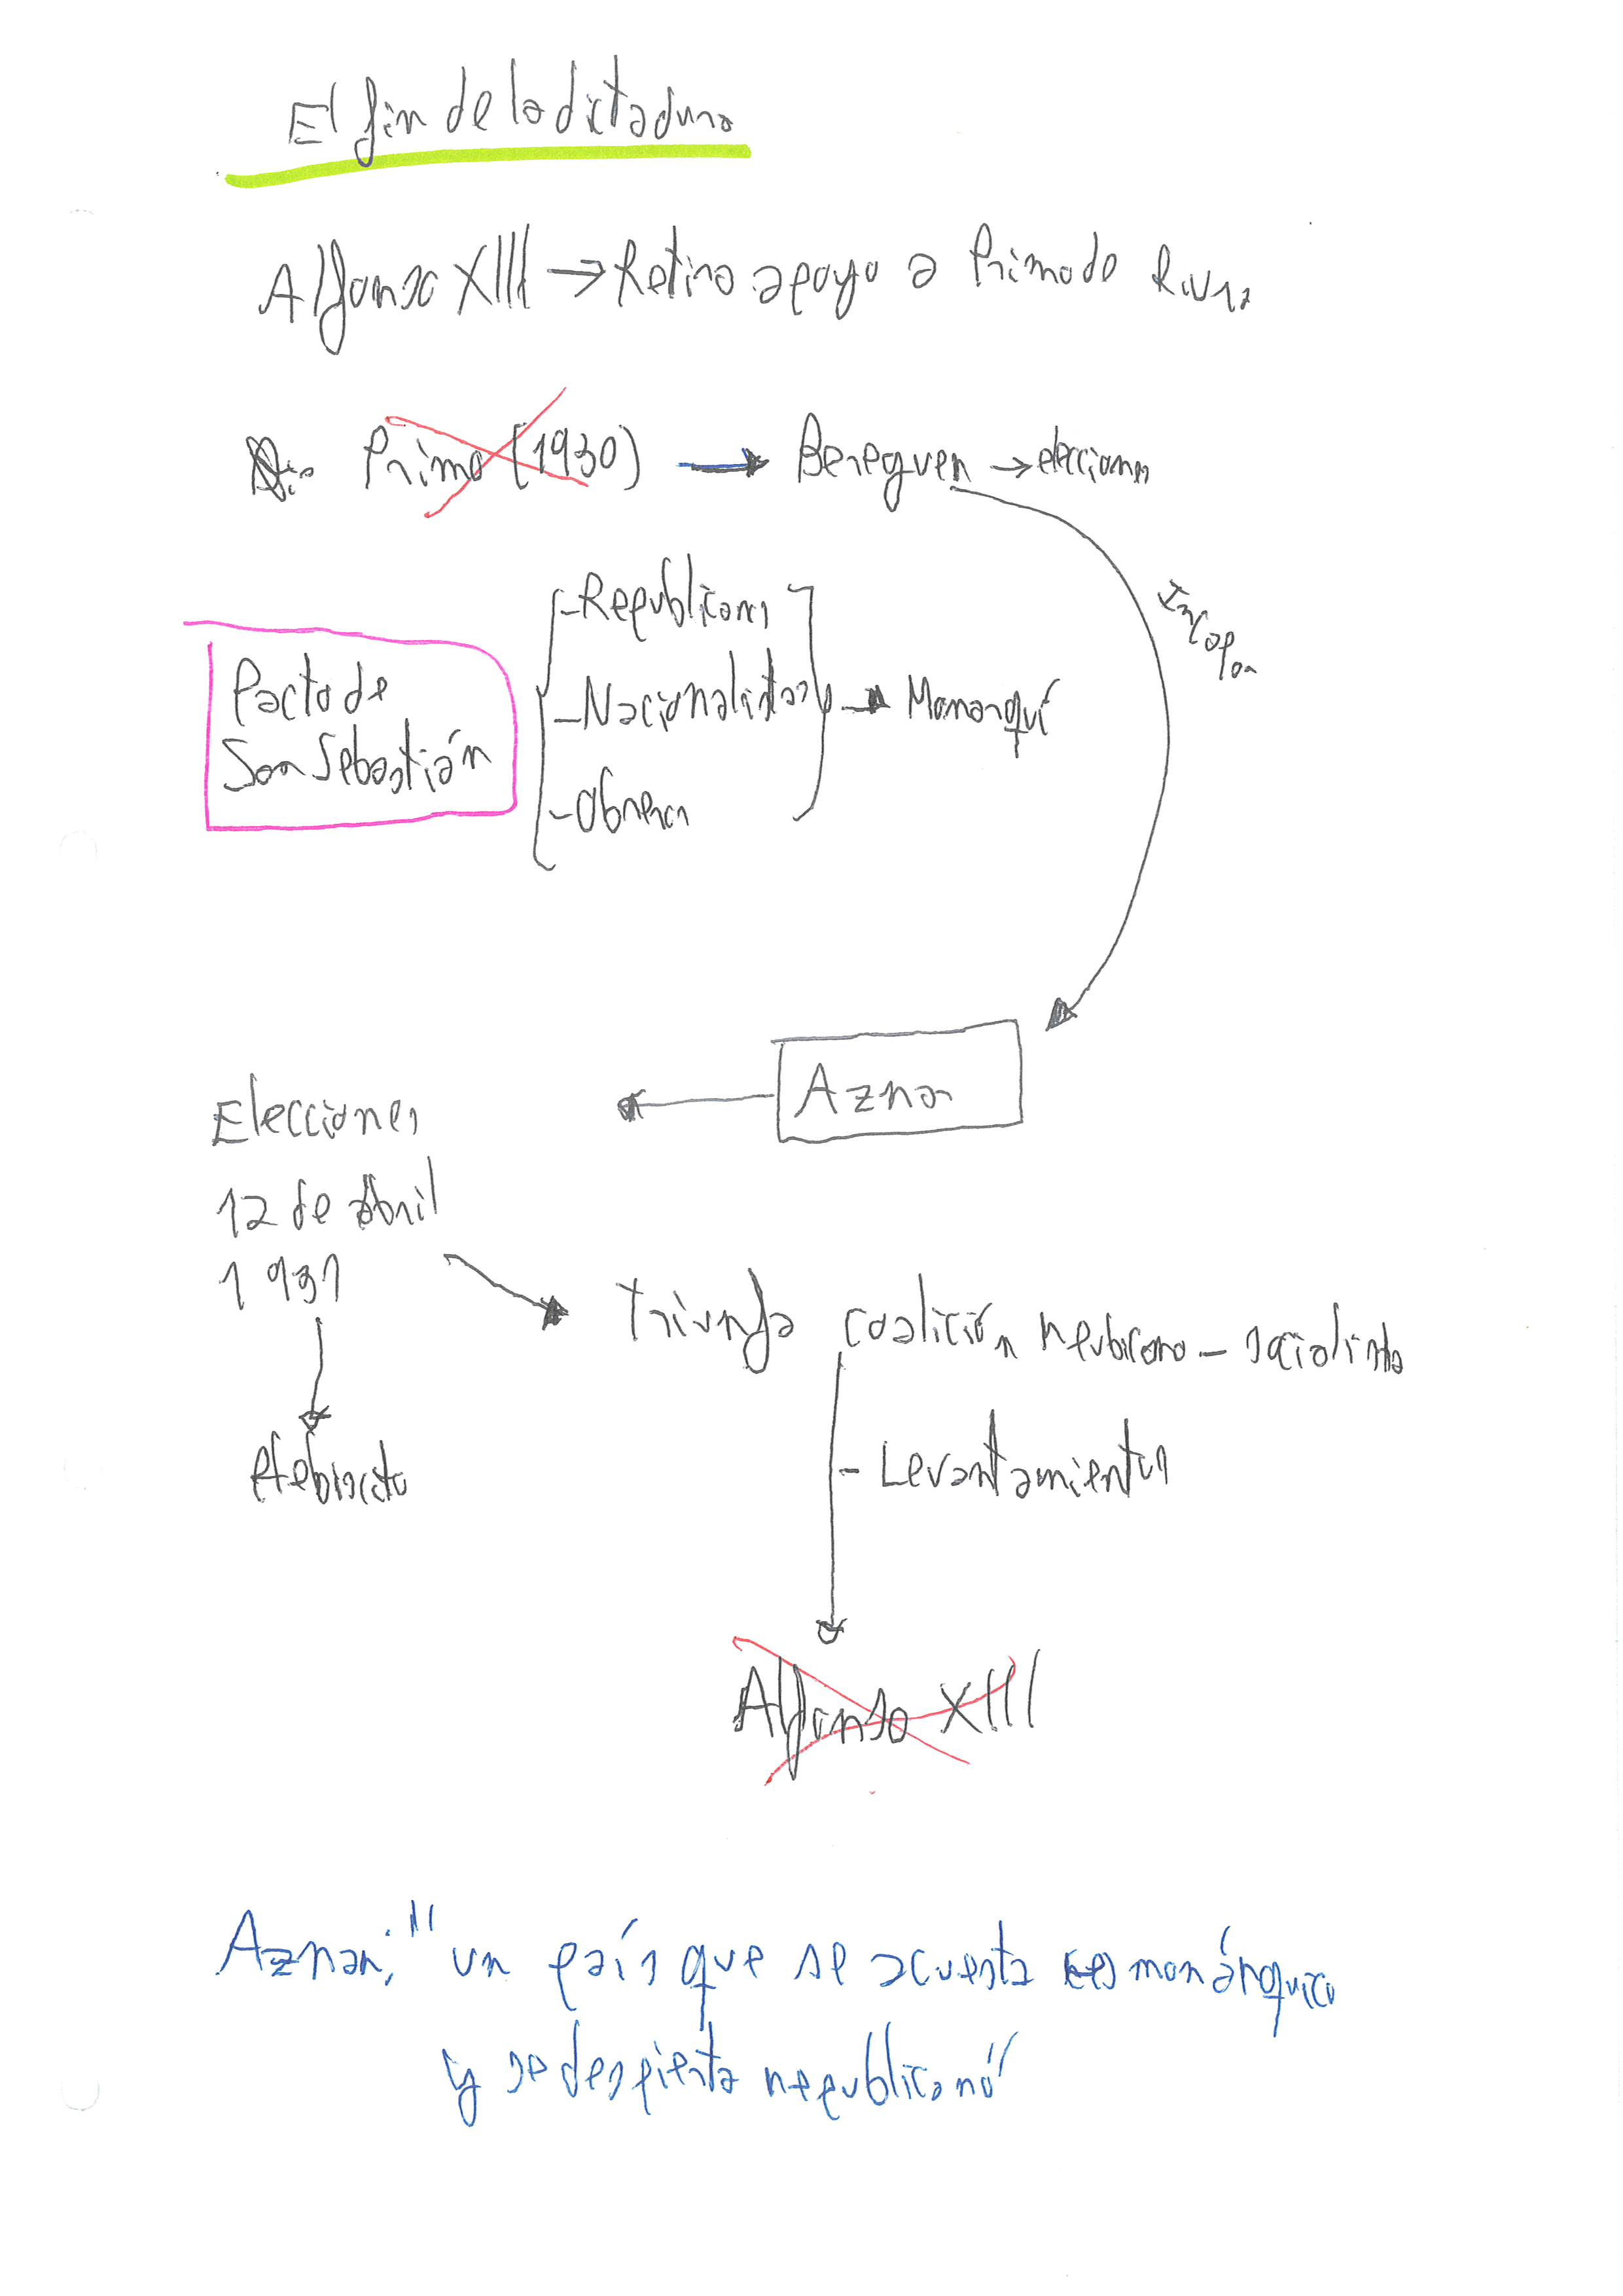 El fin de la dictadura
Alfonso XIII → Retira apoyo a Primo de Rivera
Primo (1930) → Berenguer → elecciones
Incapaz
Pacto de
San Sebastián
- Republicanos
- Nacionalistas
- Obreros
→ Monarquí
Aznar
Elecciones
12 de abril
1931
Triunfa coalición reublicano - socialista
Plebiscito
- Levantamientos
Alfonso XIII
Aznar: "un país que se acuesta monárquico
y se despierta republicano"